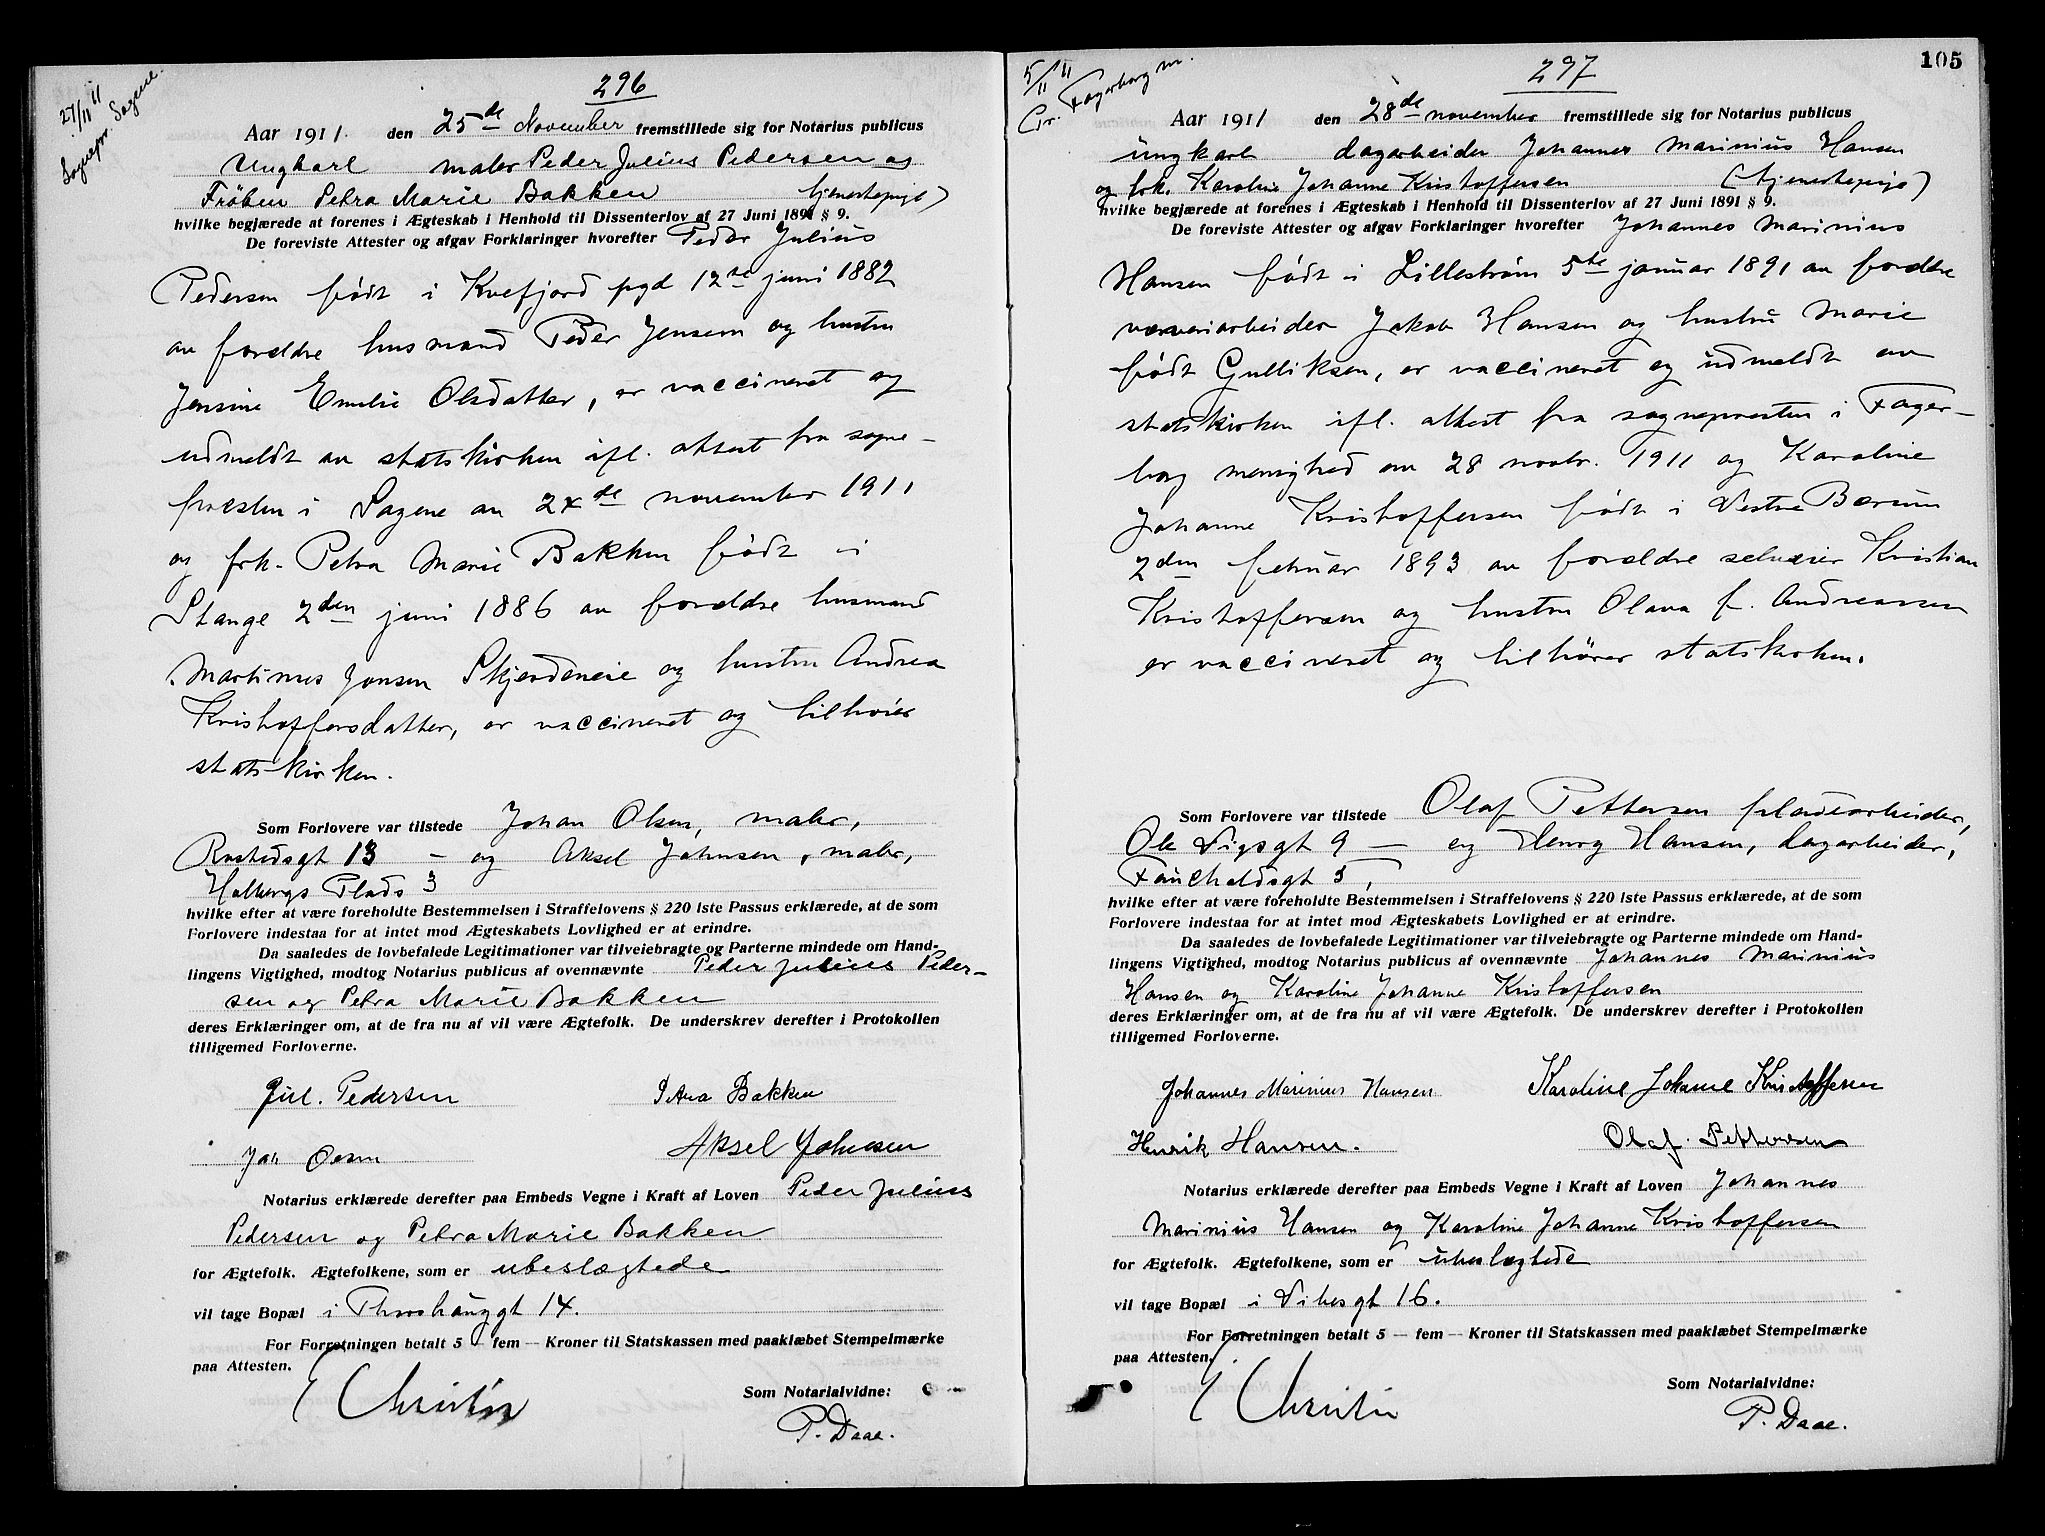 27/11 11
Sognepr. Sagene.
296
Aar 1911. den 25de November fremstillede sig for Notarius publicus
Ungkarl maler Peder Julius Pedersen og
Frøken Petra Marie Bakken tjenestepige)
hvilke begjærede at forenes i Ægteskab i Henhold til Dissenterlov af 27 Juni 1891 § 9.
De foreviste Attester og afgav Forklaringer hvorefter Peder Julius
Pedersen født i Kvefjord pgd 12te juni 1882
av forældre husmand Peder Jensen og hustru
Jensine Emelie Olsdatter, er vaccineret og
udmeldt av statskirken ifl. attest fra sogne-
præsten i Sagene av 24de november 1911
og frk. Petra Marie Bakken født i
Stange 2den juni 1886 av forældre husmand
Martinus Jonsen Skjerdeneie og hustru Andrea
Kristoffersdatter, er vaccineret og tilhører
statskirken.
Som Forlovere var tilstede Johan Olsen, maler,
Rostedsgt 13 – og Aksel Johnsen, maler,
Holbergs Plads 3
hvilke efter at være foreholdte Bestemmelsen i Straffelovens § 220 1ste Passus erklærede, at de som
Forlovere indestaa for at intet mod Ægteskabets Lovlighed er at erindre.
Da saaledes de lovbefalede Legitimationer var tilveiebragte og Parterne mindede om Hand-
lingens Vigtighed, modtog Notarius publicus af ovennævnte Peder Julius Peder-
sen og Petra Marie Bakken
deres Erklæringer om, at de fra nu af vil være Ægtefolk. De underskrev derefter i Protokollen
tilligemed Forloverne.
Jul. Pedersen Petra Bakken
Joh Olsen Aksel Johnsen
Notarius erklærede derefter paa Embeds Vegne i Kraft af Loven Peder Julius
Pedersen og Petra Marie Bakken
for Ægtefolk. Ægtefolkene, som er ubeslægtede
vil tage Bopæl i Throshauggt 14.
For Forretningen betalt 5 – fem – Kroner til Statskassen med paaklæbet Stempelmærke
paa Attesten.
Som Notarialvidne:
P. Daae.
5/11 11
Gr. Fagerborg m.
297
105
Aar 1911 den 28de november fremstillede sig for Notarius publicus
ungkarl dagarbeider Johannes Marinius Hansen
og frk. Karoline Johanne Kristoffersen (tjenestepige)
hvilke begjærede at forenes i Ægteskab i Henhold til Dissenterlov af 27 Juni 1891 § 9.
De foreviste Attester og afgav Forklaringer hvorefter Johannes Marinius
Hansen født i Lillestrøm 5te januar 1891 av forældre
værveriarbeider Jakob Hansen og hustru Marie
født Gulliksen, er vaccineret og udmeldt av
statskirken ifl. attest fra sognepresten i Fager-
borg menighed av 28 novbr. 1911 og Karoline
Johanne Kristoffersen født i Vestre Bærum
2den februar 1893 av forældre selveier Kristian
Kristoffersen og hustru Olava f. Andreassen
er vaccineret og tilhører statskirken.
Som Forlovere var tilstede Olaf Pettersen pladearbeider,
Ole Vigsgt 9 – og Henry Hansen, dagarbeider,
Fauchaldsgt 5,
hvilke efter at være foreholdte Bestemmelsen i Straffelovens § 220 1ste Passus erklærede, at de som
Forlovere indestaa for at intet mod Ægteskabets Lovlighed er at erindre.
Da saaledes de lovbefalede Legitimationer var tilveiebragte og Parterne mindede om Hand-
lingens Vigtighed, modtog Notarius publicus af ovennævnte Johannes Marinius
Hansen og Karoline Johanne Kristoffersen
deres Erklæringer om, at de fra nu af vil være Ægtefolk. De underskrev derefter i Protokollen
tilligemed Forloverne.
Johannes Marinius Hansen Karoline Johanne Kristoffersen
Henrik Hansen. Olaf Pettersen
Notarius erklærede derefter paa Embeds Vegne i Kraft af Loven Johannes
Marinius Hansen og Karoline Johanne Kristoffersen
for Ægtefolk. Ægtefolkene, som er ubeslægtede
vil tage Bopæl i Vibesgt 16.
For Forretningen betalt 5 – fem – Kroner til Statskassen med paaklæbet Stempelmærke
paa Attesten.
Som Notarialvidne:
P. Daae.